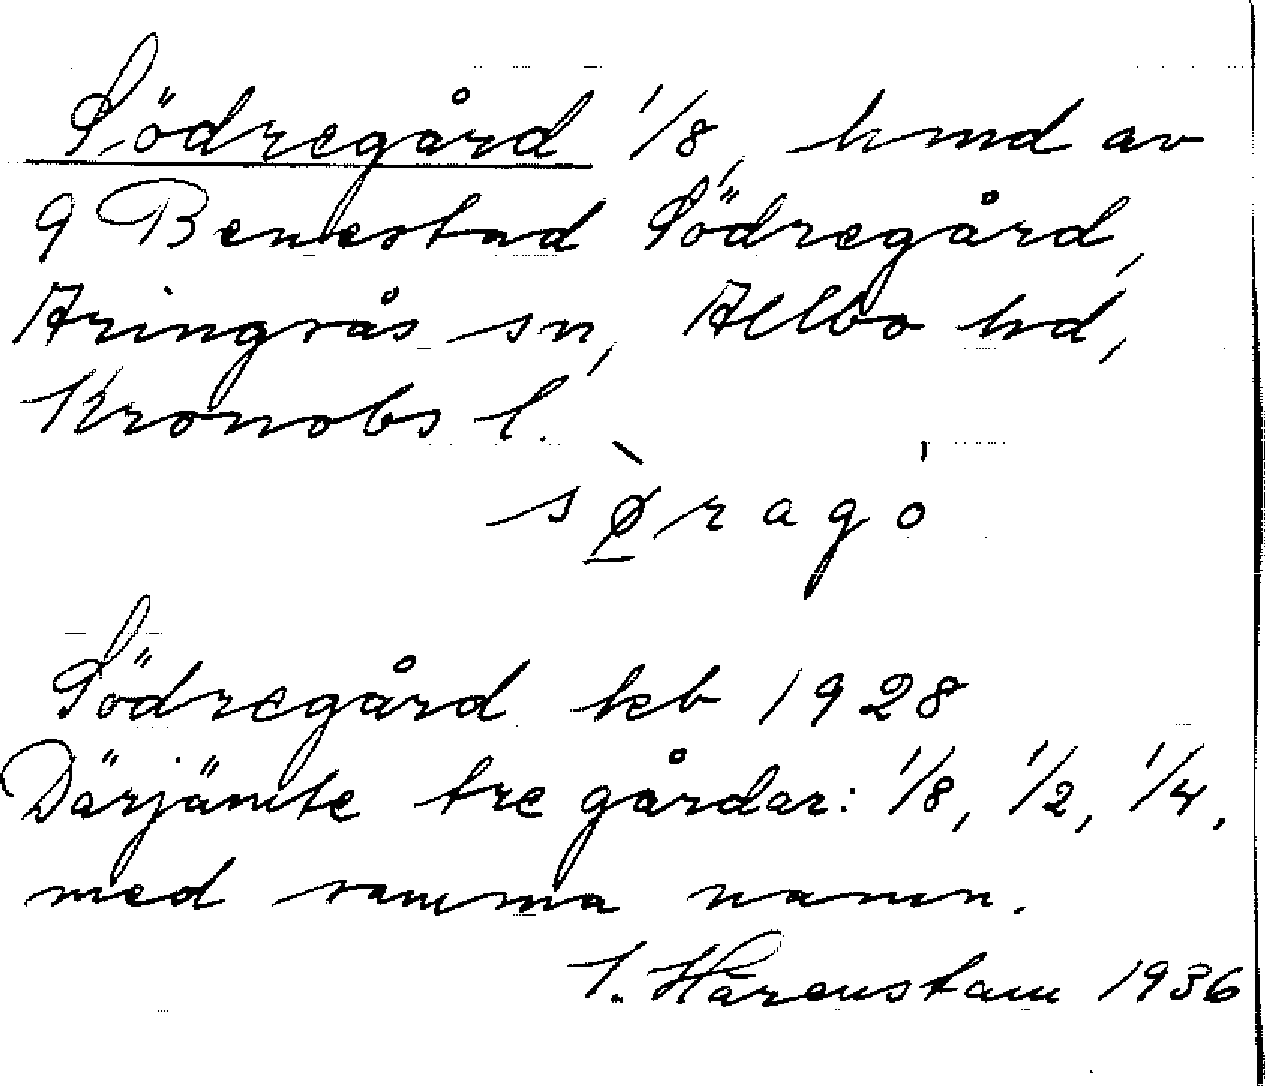 Södregård 1/8, hmd av
9 Benestad Södregård,
Aringsås sn, Allbo hd,
Kronobs l.
sø̀ragó
Södregård keb 1928
Därjämte tre gårdar: 1/8, 1/2, 1/4,
med samma namn.
Hårenstam 1936